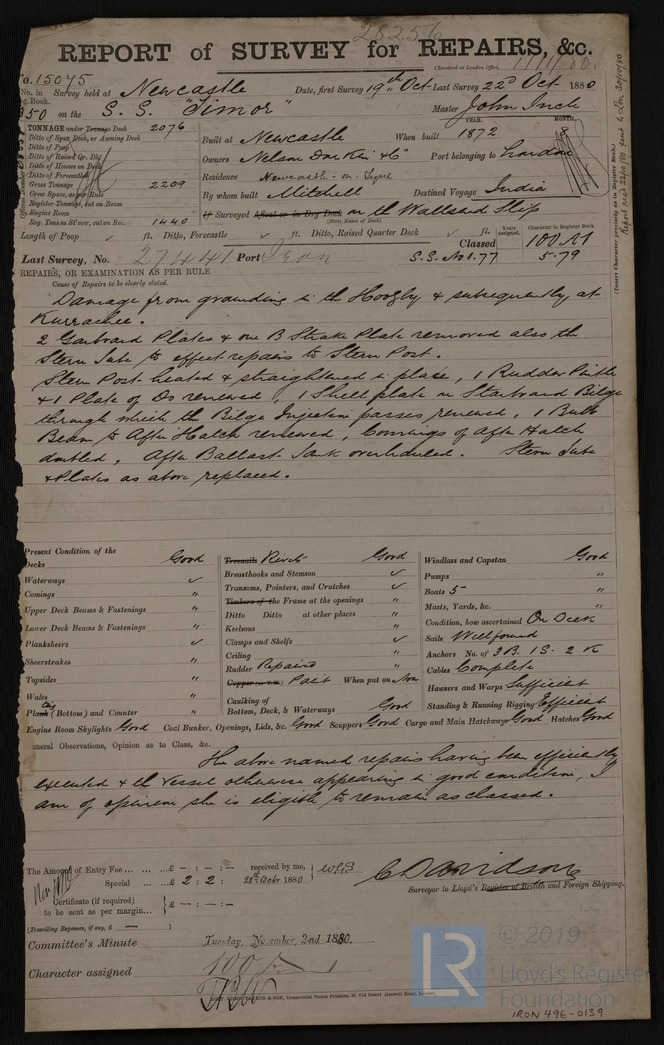 28256
REPORT of SURVEY for REPAIRS, &c.
(Received at London Office,
No. 15075
No. in Survey held at Newcastle Date, first Survey 19th Oct Last Survey 22d Oct 1880
Reg. Book.
350 on the S. S. "Timor" Master John Inch
TONNAGE under Tonnage Deck 2076
Ditto of Spar Deck, or Awning Deck
Ditto of Poop
Ditto of Raised Qr. Dk.
Ditto of Houses on Deck
Ditto of Forecastle
Gross Tonnage 2209
Crew Space, as per Rule
Register Tonnage, cut on Beam
Engine Room
Reg. Ton. as St'mer, cut on Bm. 1440
YEAR. MONTH.
Built at Newcastle When built 1872 8
Owners Nelson Donkin & Co Port belonging to London
Residence Newcastle-on-Tyne
By whom built Mitchell Destined Voyage India
If Surveyed Afloat or in Dry Dock on the Wallsend Slip
(State Name of Dock)
Length of Poop ✓ ft. Ditto, Forecastle ✓ ft. Ditto, Raised Quarter Deck ✓ ft.
Years assigned. Character in Register Book.
Classed 100 A1
Last Survey, No. 27441 Port Iron S.S. No 1.77 5.79
REPAIRS, OR EXAMINATION AS PER RULE
Cause of Repairs to be clearly stated.
Damage from grounding in the Hooghly & subsequently at
Kurrachee.
2 Garboard Plates & one B Strake Plate removed also the
Stern Tube to effect repairs to Stern Post.
Stern Post heated & straightened in place, 1 Rudder Pintle
& 1 Plate of Do renewed, 1 Shell plate on Starboard Bilge
through which the Bilge Injection passes renewed, 1 Bulb
Beam to After Hatch renewed, Comings of After Hatch
doubled, After Ballast Tank overhauled. Stern Tube
& Plates as above replaced.
Present Condition of the
Decks Good
Waterways ✓
Comings "
Upper Deck Beams & Fastenings "
Lower Deck Beams & Fastenings "
Planksheers ✓
Sheerstrakes "
Topsides "
Wales "
Plank (Bottom) and Counter "
Treenails Rivets Good
Breasthooks and Stemson ✓
Transoms, Pointers, and Crutches ✓
Timbers of the Frame at the openings "
Ditto Ditto at other places "
Keelsons "
Clamps and Shelfs ✓
Ceiling "
Rudder Repaired "
Copper (or Y.M.) Paint When put on Now
Caulking of
Bottom, Deck, & Waterways Good
Windlass and Capstan Good
Pumps "
Boats 5 "
Masts, Yards, &c. "
Condition, how ascertained On Deck
Sails Well found
Anchors No. of 3 B. 1 S. 2 K
Cables Complete
Hawsers and Warps Sufficient
Standing & Running Rigging Efficient
Engine Room Skylights Good Coal Bunker, Openings, Lids, &c. Good Scuppers Good Cargo and Main Hatchways Good Hatches Good
General Observations, Opinion as to Class, &c.
The above named repairs having been efficiently
executed & the Vessel otherwise appearing in good condition, I
am of opinion she is eligible to remain as classed.
The Amount of Entry Fee ... £ - : - : - received by me,
Special ... £ 2 : 2 : 28th Octbr 1880
Certificate (if required) £ - : - : -
to be sent as per margin...
(Travelling Expenses, if any, £ — )
C Davidson
Surveyor to Lloyd's Register of British and Foreign Shipping.
Committee's Minute Tuesday, November, 2nd 1880.
Character assigned 100 A
© 2019
LR
Lloyd's Register
Foundation
IRON 496-0139